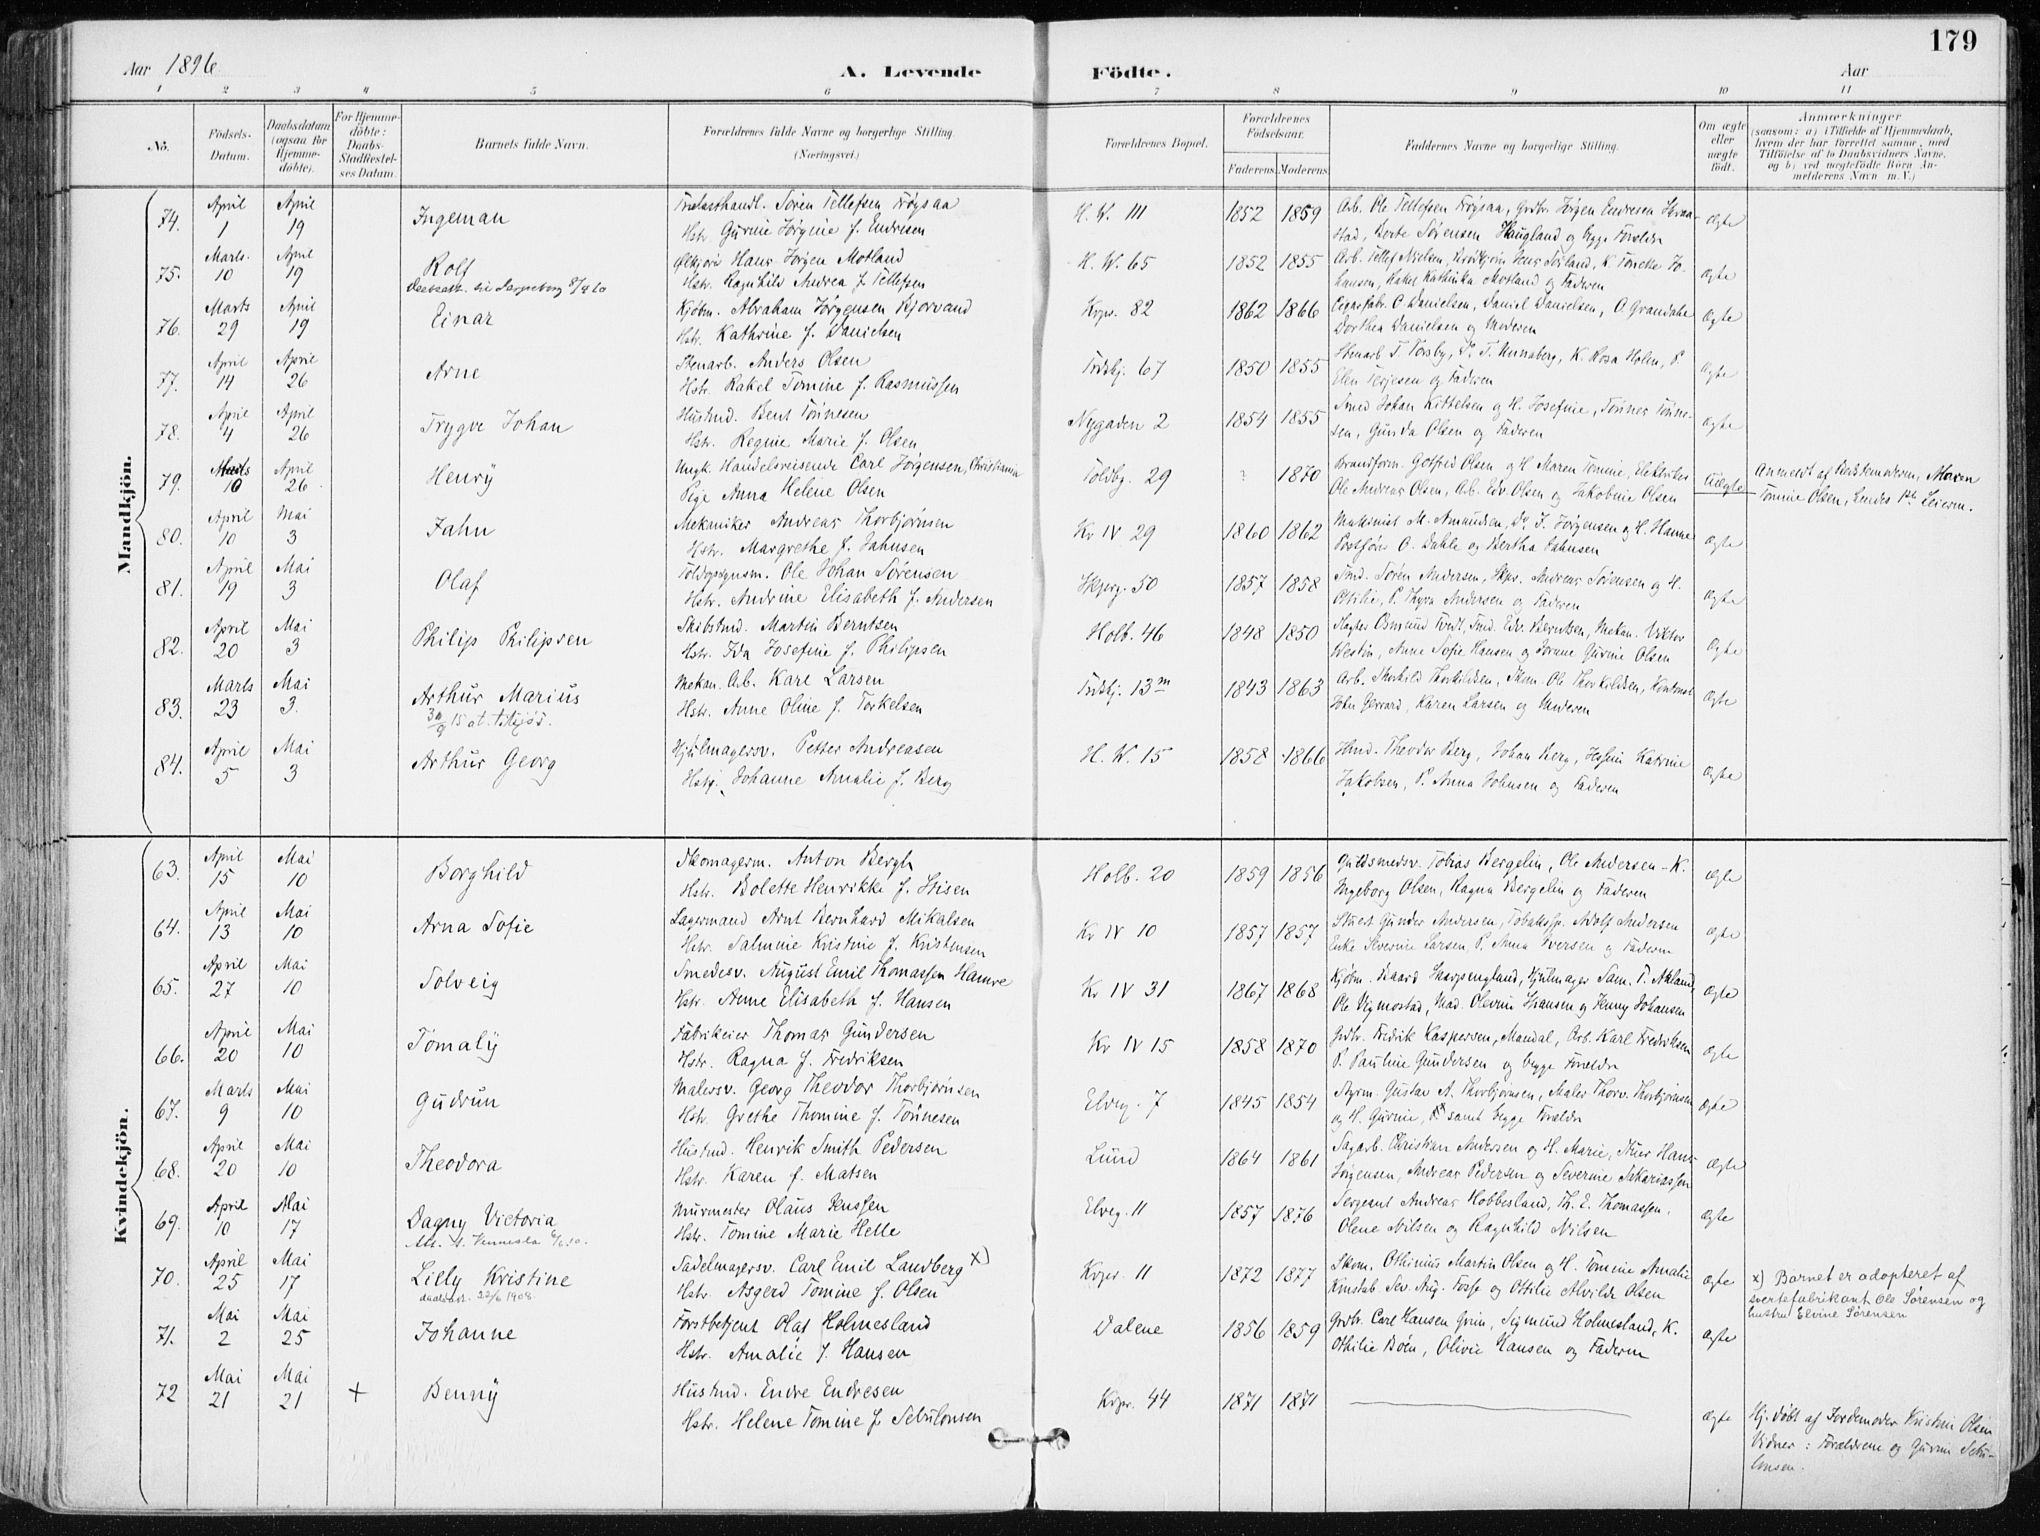 179
Aar 1896 A. Levende Födte. Aar
1 2 3 4 5 6 7 8 9 10 11
No. Födsels-Datum. Daabsdatum (ogsaa for Hjemme-döbte). For Hjemme-döbte: Daabs-Stadfæstel-ses Datum. Barnets fulde Navn. Forældrenes fulde Navne og borgerlige Stilling. (Næringsvei.) Forældrenes Bopæl. Forældrenes Födselsaar. Faderens Moderens Faddernes Navne og borgerlige Stilling. Om ægte eller uægte födt. Anmærkninger (saasom: a) i Tilfælde af Hjemmedaab, hvem der har forrettet samme, med Tilföielse af to Daabsvidners Navne, og b) ved uægtefödte Börn An-melderens Navn m. V.)
Mandkjön.
74. April 1 April 19 Ingeman Sören Tellefsen Frøysaa H. W. 111 1852 1859 Arb. Ole Tellefsen Frøysaa, Grdbr. Jørgen Endresen
Hstr. Gurine Jørgine f. Endresen stad, Dorte Sørensen Haugland og begge Forældre ægte
75. Marts 10 April 19 Rolf Hans Jørgen Motland H. W. 65 1852 1855 Arb. Tellef Nielsen,
Hstr. Ragnhild Andrea f. Tellefsen hansen, Rakel Kathinka Motland og Faderen ægte
76. Marts 29 April 19 Einar Kjøbm. Abraham Jørgensen Kjorvand Kvpr. 82 1862 1866 Cigarfabr. C. Danielsen, Daniel Danielsen, O. Grandahl
Hstr. Kathrine f. Danielsen Dorthea Danielsen og Moderen ægte
77. April 14 April 26 Arne Stenarb. Anders Olsen Trdsbj. 67 1850 1855 Stenarb. T. Torsby, Do. T. Unnaberg, K. Rosa Holen, P.
Hstr. Rakel Tomine f. Rasmussen Elen Terjesen og Faderen ægte
78. April 4 April 26 Trygve Johan Hustmd. Bent Tønnesen Nygaden 2 1854 1855 Smed Johan Kittelsen og H. Josefine, Tønnes Tønne-
Hstr. Regine Marie f. Olsen sen, Gunda Olsen og Faderen ægte
79. Marts 10 April 26 Henry Ungk. Handelsreisende Carl Jørgensen, Christiania Toldbg. 29 ? 1870 Brandform. Gotfred Olsen og H. Maren Tomine, Elektriker
Pige Anna Helene Olsen Ole Andreas Olsen, Arb. Edv. Olsen og Jakobine Olsen Uægte Anmeldt af Bedstemoderen, Maren
Tomine Olsen, Lendes 1ste Leierm.
80. April 10 Mai 3 Jahn Mekaniker Andreas Thorbjørnsen Kr IV 29 1860 1862 Maskinist M. Amundsen, Do. J. Jørgensen og H. Hanne
Hstr. Margrethe f. Jahnsen O. Dahle og Bertha Jahnsen ægte
81. April 19 Mai 3 Olaf Toldopsynsm. Ole Johan Sørensen Skperg. 50 1857 1858 Tmd. Søren Andersen, Skpr. Andreas Sørensen og H.
Hstr. Andrine Elisabeth f. Andersen Ottilie, P. Thyra Andersen og Faderen ægte
82. April 20 Mai 3 Philip Philipsen Skibstmd. Martin Berntsen Holb. 46 1848 1850 Slagter Osmund Tvedt, Tmd. Edv. Berntsen, Mekan. Viktor
Hstr. Ida Josefine f. Philipsen Westin, Anne Sofie Hansen og Jomne Gurine Olsen ægte
83. Marts 23 Mai 3. Arthur Marius Mekan. Arb. Karl Larsen Trdsbj. 13m 1843 1863 Arb. Thorkild Thorkildsen, Skom. Ole Thorkildsen, Kontorist
Hstr. Anne Oline f. Torkelsen John Gerrard, Karen Larsen og Moderen ægte
84. April 5 Mai 3 Arthur Georg Hjulmagersv. Petter Andreasen H. W. 15 1858 1866 Hmd. Theodor Berg, Johan Berg, Katrine
Hstr. Johanne Amalie f. Berg Jakobsen, P. Anna Johnsen og Faderen ægte
Kvindekjön.
63. April 15 Mai 10 Borghild Skomagerm. Anton Bergh Holb. 20 1859 1856 Guldsmedsv. Tobias Bergelin, Ole Andersen - K.
Hstr. Bolette Henrikke f. Stisen Ingeborg Olsen, Ragna Bergelin og Faderen ægte
64. April 13 Mai 10 Arna Sofie Lagermand Arnt Bernhard Mikalsen Kr IV 10 1857 1857 Gunder Andersen, Adolf Andersen
Hstr. Salmine Kristine f. Kristensen Enke Severine Larsen P. Anna Iversen og Faderen ægte
65. April 27 Mai 10 Solveig Smedesv. August Emil Thomassen Hamre Kr IV 31 1867 1868 Kjøbm. Baard Skarpengland, Hjulmager Sam. T. Aklund
Hstr. Anne Elisabeth f. Hansen Ole Vigmostad, Mad. Olevine Hansen og Jenny Johansen ægte
66. April 20 Mai 10 Tomaly Fabrikeier Thomas Gundersen Kr IV 15 1858 1870 Grdbr. Fredrik Kaspersen, Mandal, Arb. Karl Fredriksen
Hstr. Ragna f. Fredriksen P. Pauline Gundersen og begge Forældre ægte
67. Marts 9 Mai 10 Gudrun Malersv. Georg Theodor Thorbjørnsen Elveg. 7 1845 1854 Styrm. Gustav A. Thorbjørnsen, Maler Thorv. Thorbjørnsen
Hstr. Grethe Thomine f. Tønnesen og H. Gurine, samt begge Forældre ægte
68. April 20 Mai 10 Theodora Hustmd. Henrik Smith Pedersen Lund 1864 1861 Sagarb. Christian Andersen og H. Marie, Hans
Hstr. Karen f. Matsen Jørgensen, Andreas Pedersen og Severine Sakariassen ægte
69. April 10 Mai 17 Dagny Victoria Murmester Olaus Jenssen Elveg. 11 1857 1876 Sergeant Andreas Hobbesland, Th. E. Thomassen.
Hstr. Tomine Marie Helle Olene Nilsen og Ragnhild Nilsen ægte
70. April 25 Mai 17 Lilly Kristine Sadelmagersv. Carl Emil Landberg x) Kvpr. 11 1872 1877 Skom. Othinius Martin Olsen og H. Tomine Amalie
22/6 1908 Hstr. Asgerd Tomine f. Olsen Konstab. Sev. Aug. Fosse og Ottilie Alvilde Olsen ægte x) Barnet er adopteret af
sværtefabrikant Ole Sørensen og
hustru Elvine Sørensen
71. Mai 2 Mai 25 Johanne Forstbetjent Olaf Holmesland Dalene 1856 1859 Grdbr. Carl Hansen Grim, Sigmund Holmesland, K.
Hstr. Amalie f. Hansen Othilie Boen, Olivie Hansen og Faderen ægte
72 Mai 21 Mai 21 + Benny Hustmd. Endre Endresen Kvpr. 44 1871 1871
Hstr. Helene Tomine f. Sebulonsen ægte Hj. døbt af Jordemoder Kristine Olsen
Vidner: Forældrene og Gurine Sebu-
lonsen.